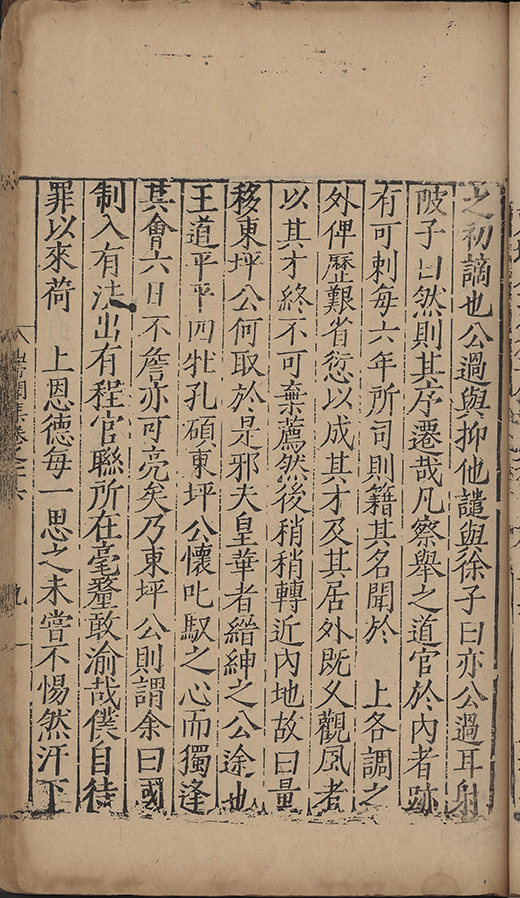 之初謫也公過與抑他譴與徐子曰亦公過耳射
陂子曰然則其序遷哉凡察舉之道官於內者跡
有可刺每六年所司則籍其名聞於　上各調之
外俾歷艱省愆以成其才及其居外旣乂觀風者
以其才終不可棄薦然後稍稍轉近內地故曰量
移東坪公何取於是邪夫皇華者縉紳之公途也
王道平平四牡孔碩東坪公懷叱馭之心而獨逢
其會六日不詹亦可亮矣乃東坪公則謂余曰國
制入有法出有程官聯所在毫釐敢渝哉僕自待
罪以來荷　上恩德每一思之未嘗不惕然汗下
卷之六
九